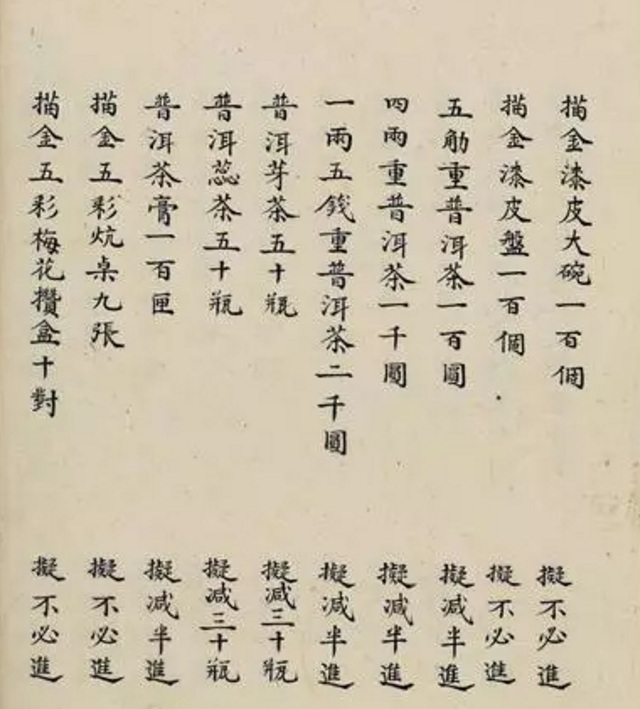 描金漆皮大碗一百個
擬不必進
描金漆皮盤一百個
擬不必進
五觔重普洱茶一百圓
擬減半進
四兩重普洱茶一千圓
擬減半進
一兩五錢重普洱茶二千圓
擬減半進
普洱芽茶五十瓶
擬減三十瓶
普洱蕊茶五十瓶
擬減三十瓶
普洱茶膏一百匣
擬減半進
描金五彩炕桌九張
擬不必進
描金五彩梅花攢盒十對
擬不必進